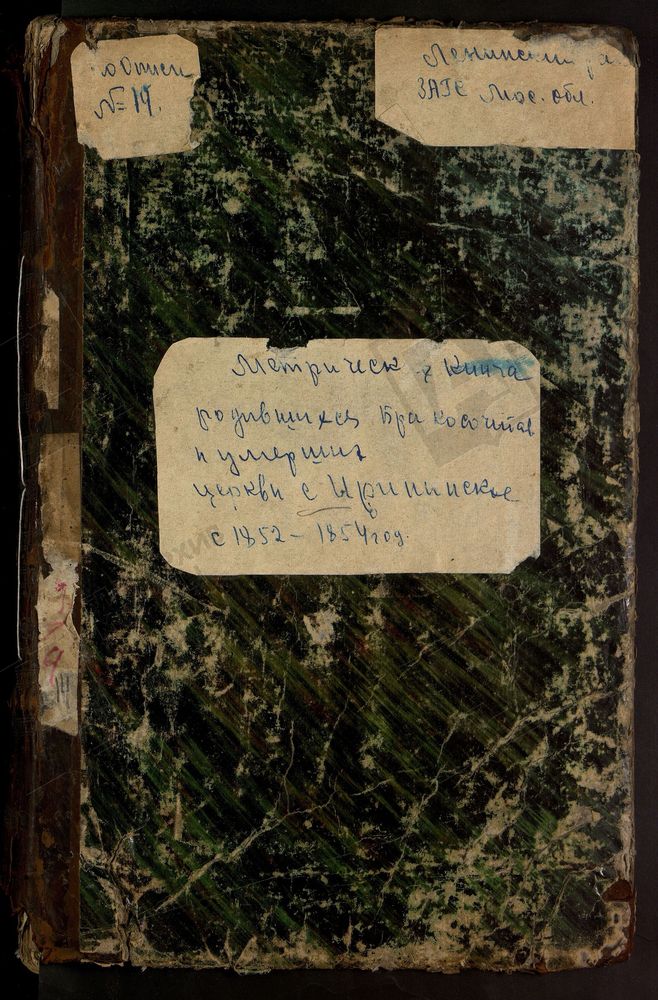 по Описи
№ 19.
Ленинский р.
ЗАГС Мос. обл.
Метрическ я Книга
родившихся бракосочитав
и умерших
церкви с Ирининское
с 1852 – 1854 год.